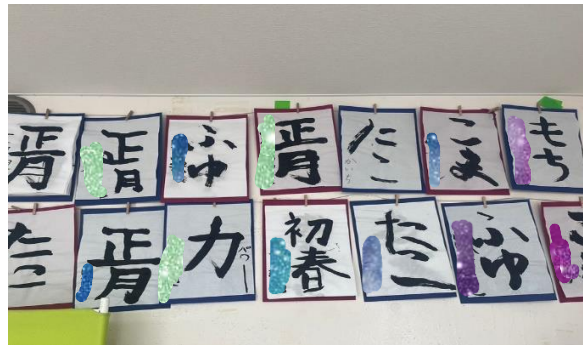 正月
正月
ふゆ
正月
たこ
こま
もち
たこ
正月
力
初春
たこ
ふゆ